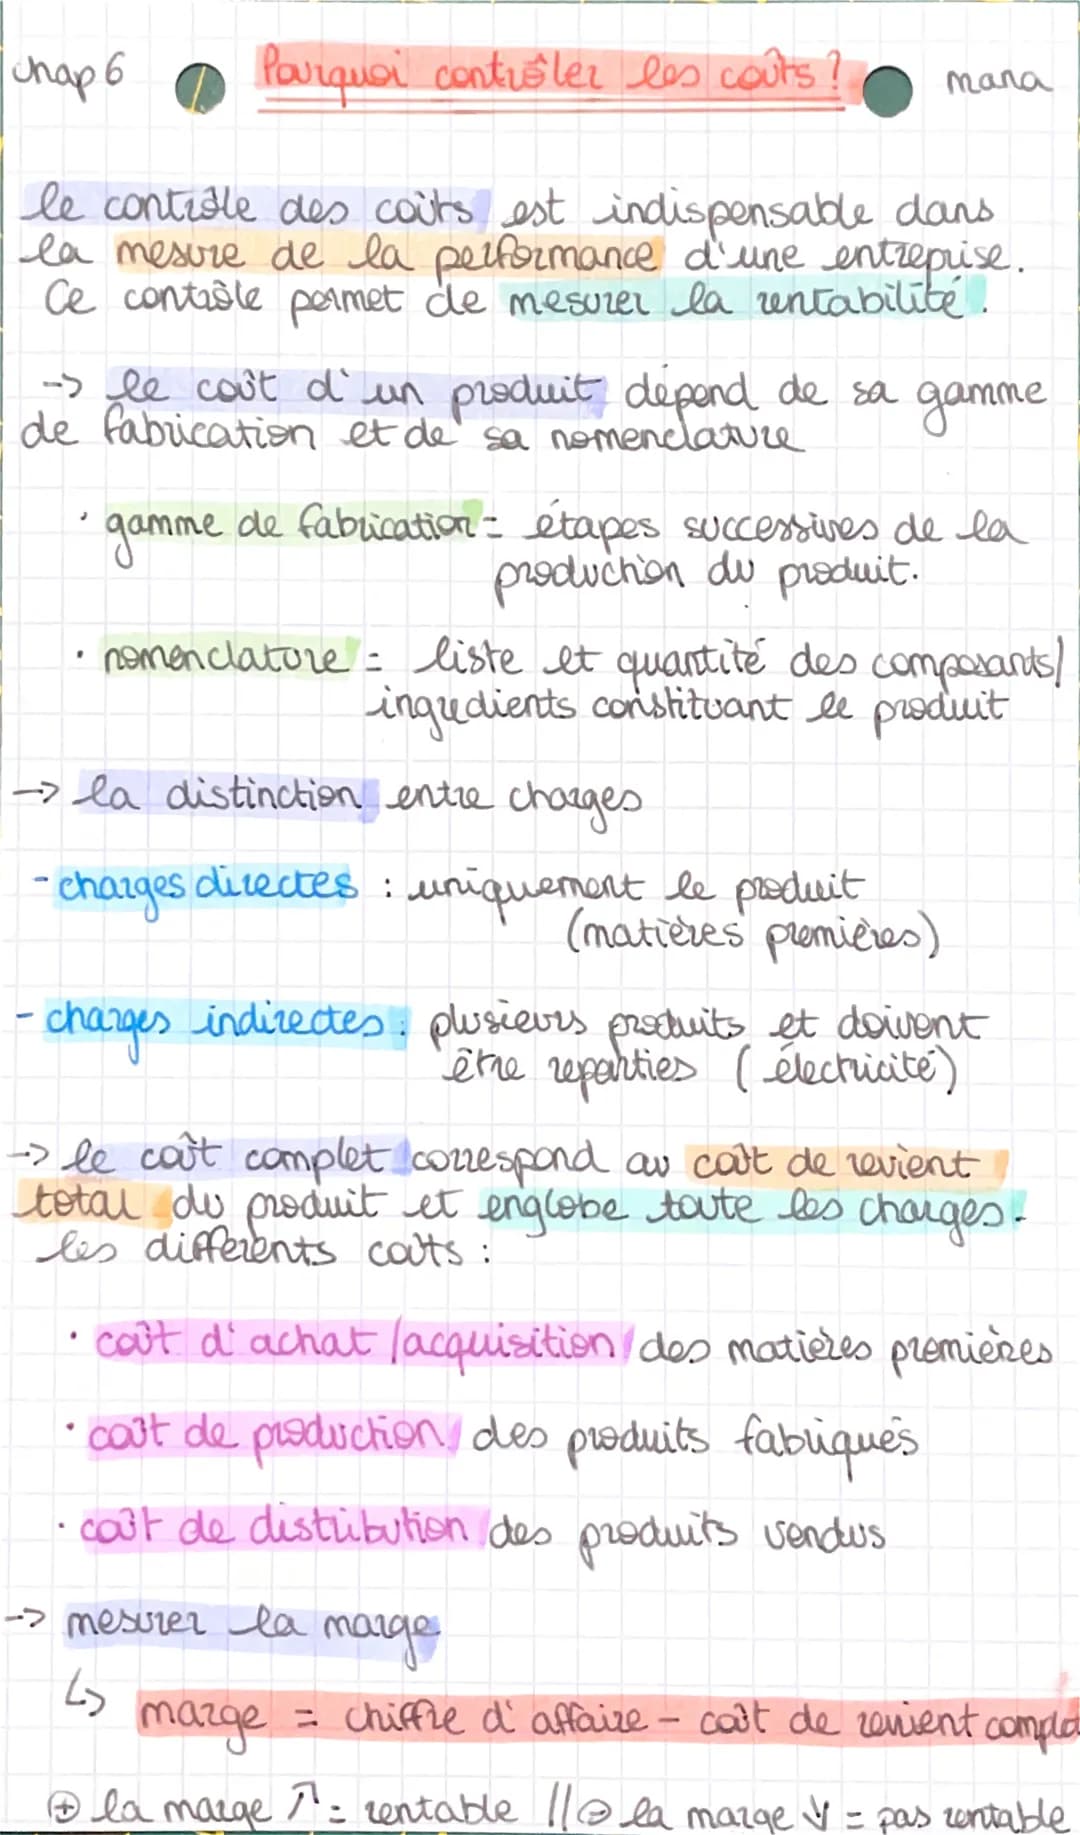 chap 6 Pourquoi contrôler les coûts ? mana
le contrôle des coûts est indispensable dans
la mesure de la performance d'une entreprise.
Ce contrôle permet de mesurer la rentabilité.
-> le coût d'un produit dépend de sa gamme
de fabrication et de sa nomenclature
· gamme de fabrication = étapes successives de la
production du produit.
· nomenclature = liste et quantité des composants/
ingredients constituant le produit
-> la distinction entre charges
- charges directes : uniquement le produit
(matières premières)
- charges indirectes : plusieurs produits et doivent
être reparties (électricité)
-> le coût complet correspond au coût de revient
total du produit et englobe toute les charges.
les différents coûts :
· coût d'achat /acquisition des matières premières
· coût de production des produits fabriqués
· coût de distribution des produits vendus
-> mesurer la marge
↳ marge = chiffre d'affaire - coût de revient complet
⊕ la marge ↗ = rentable // ⊖ la marge ↓ = pas rentable